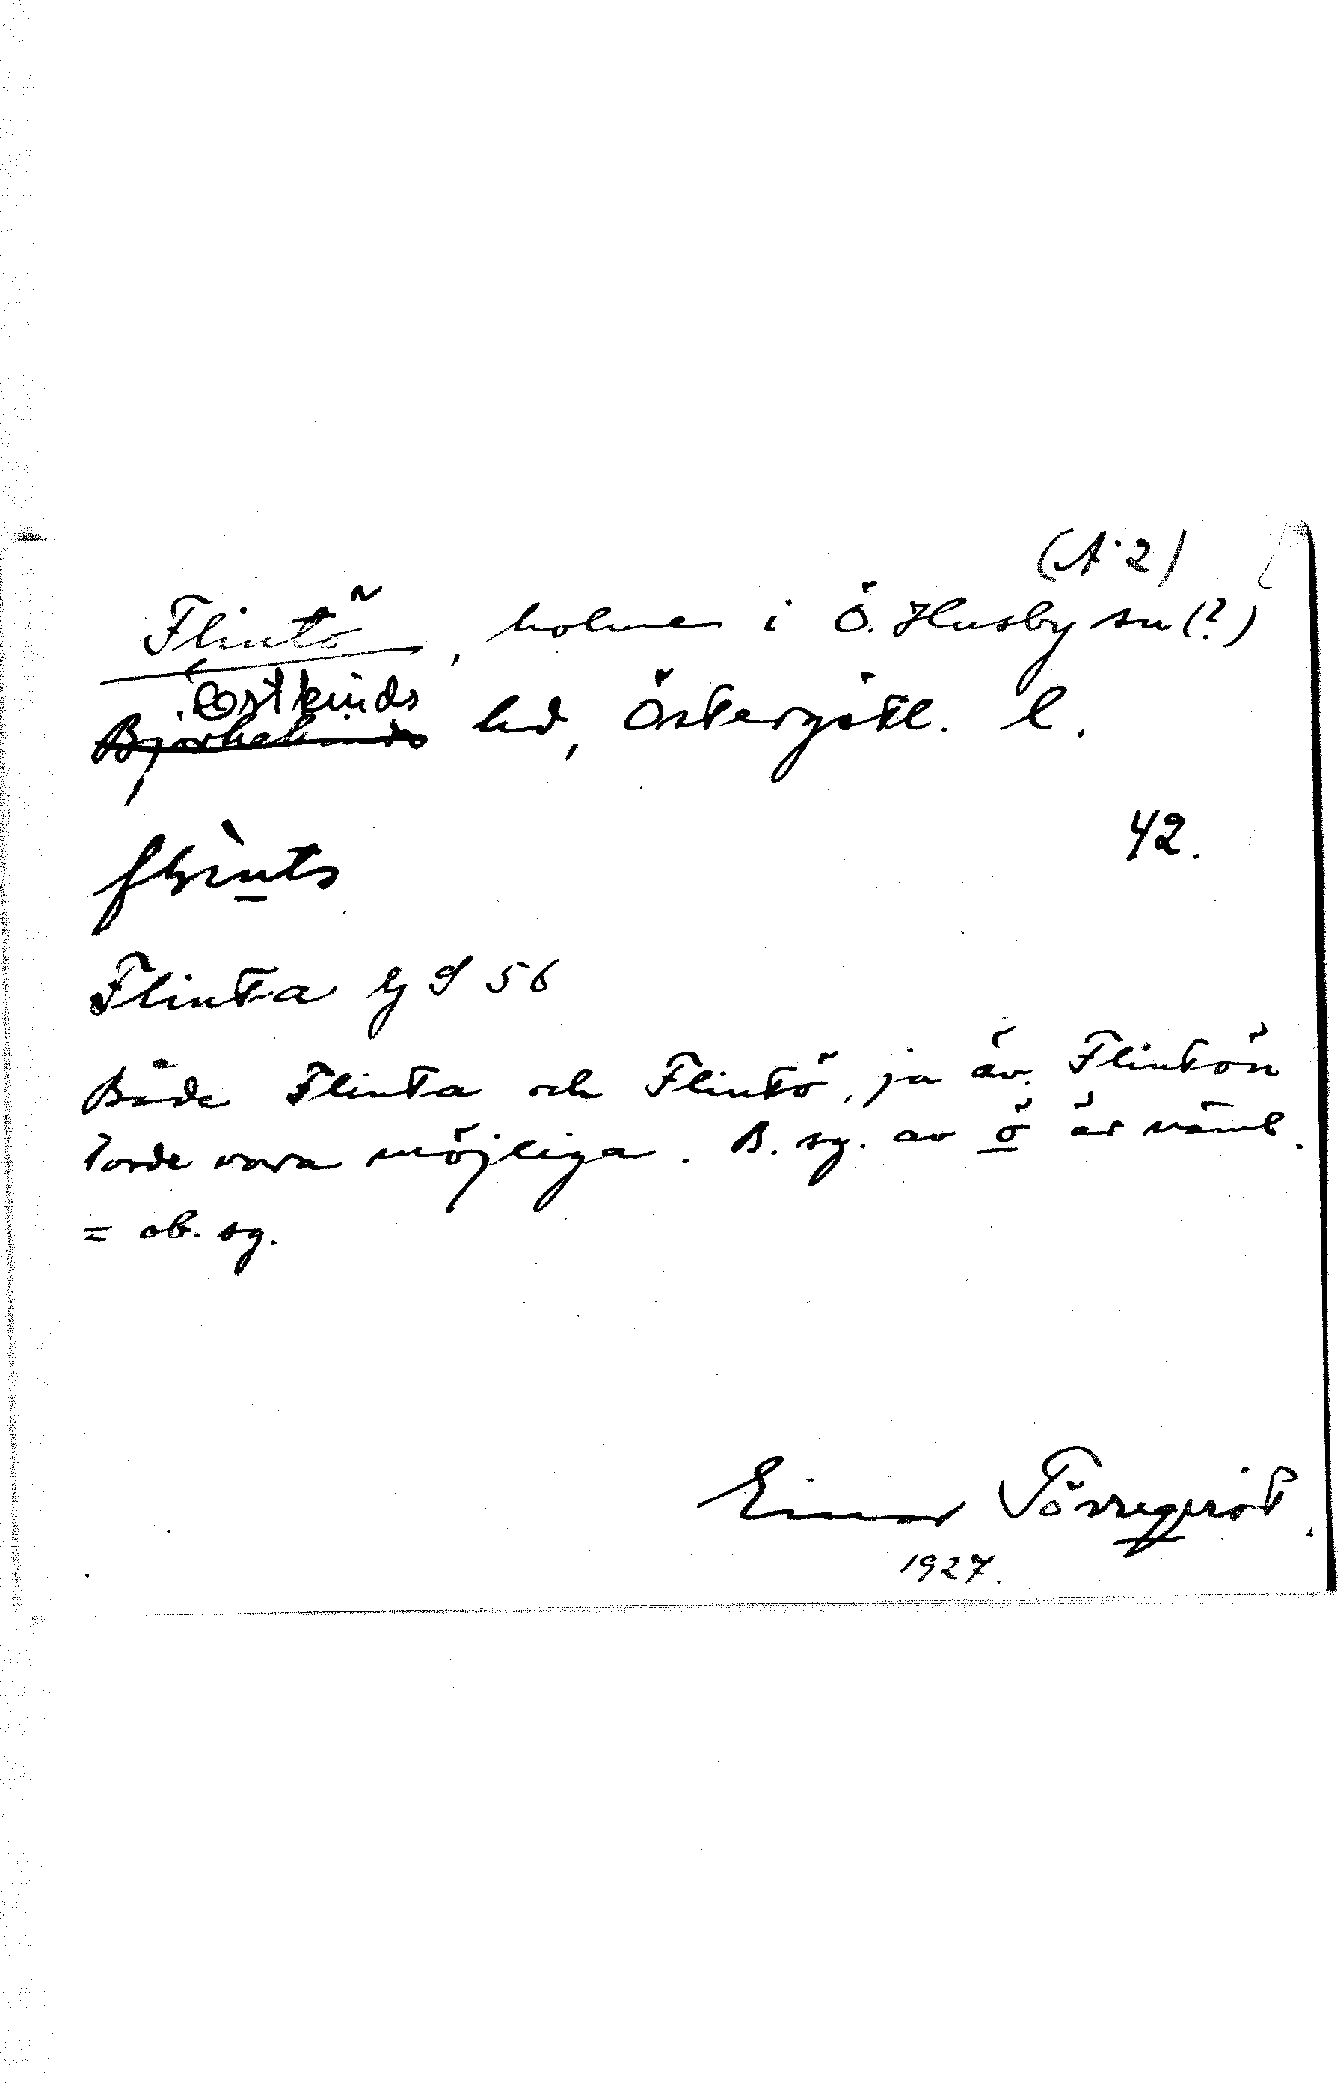 (A 2)
Flintö, holme i Ö. Husby sn (?)
Östkinds
Björkekinds hd, Östergötl. l.
42.
flìntə
Flinta
56
Både Flinta och Flintö, ja äv. Flintön
torde vara möjliga. B. sg. av ö är näml.
= ob. sg.
Einar Törnqvist.
1927.